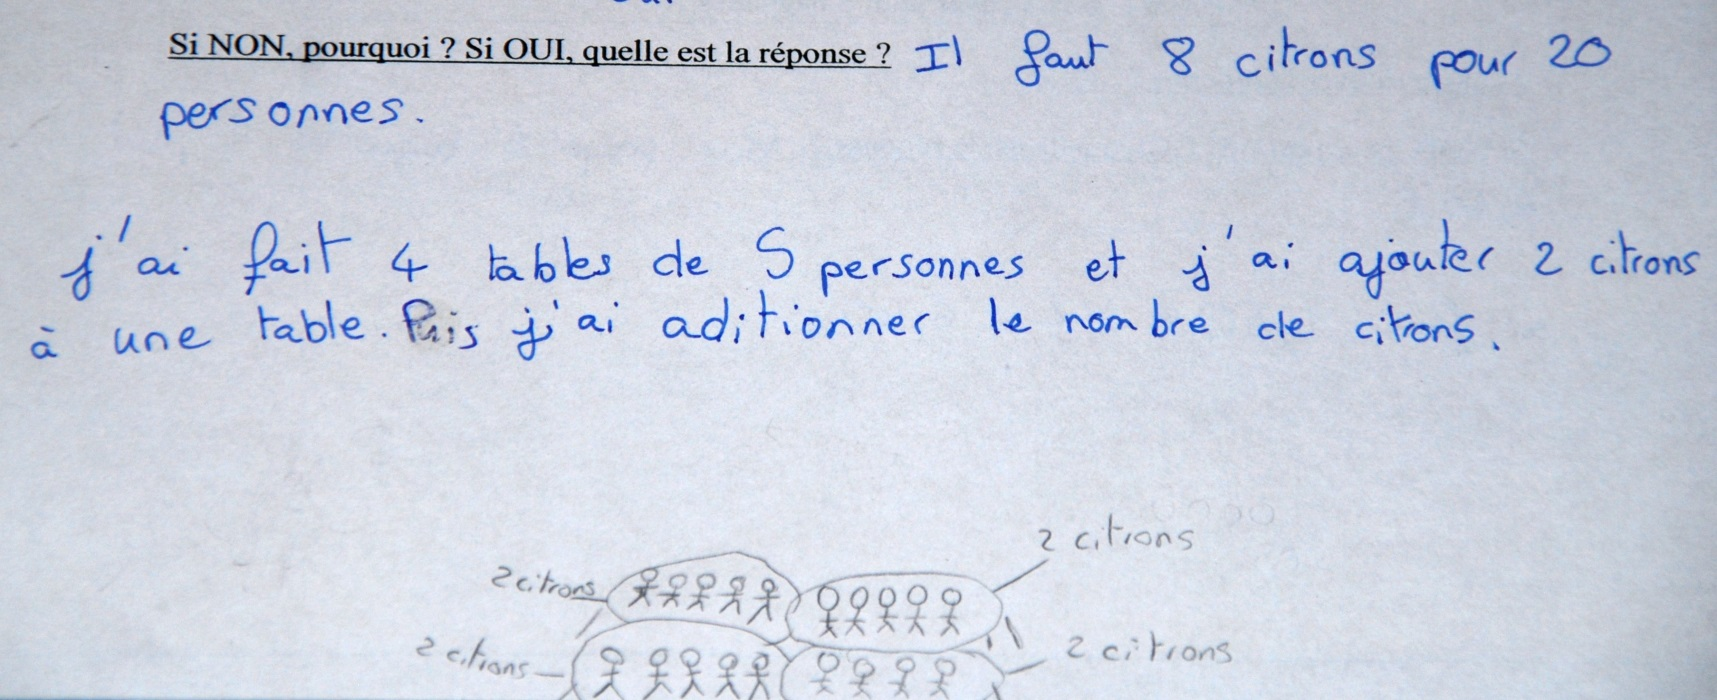 Si NON, pourquoi ? Si OUI, quelle est la réponse ? Il faut 8 citrons pour 20
personnes.
j'ai fait 4 tables de 5 personnes et j'ai ajouter 2 citrons
à une table. Puis j'ai aditionner le nombre de citrons.
2 citrons
2 citrons
2 citrons
2 citrons